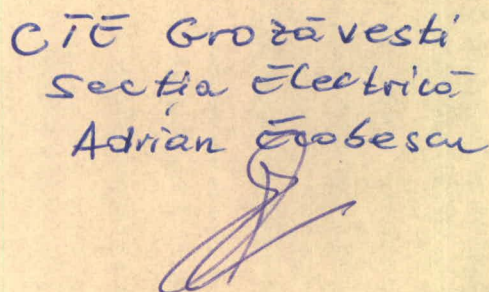 CTE Grozăvesti
Secția Electrică
Adrian Ecobescu